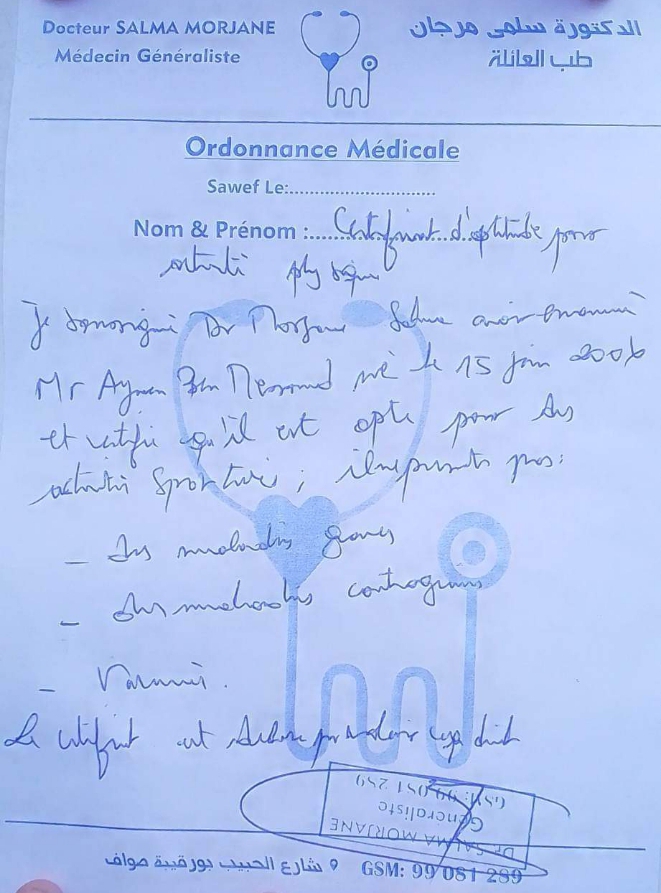 Docteur SALMA MORJANE
Médecin Généraliste
الدكتورة سلمى مرجان
طب العائلة
Ordonnance Médicale
Sawef Le:............................
Nom & Prénom :...... Certificat d'aptitude pour
activité physique
Je soussigné Dr Morjane Salma avoir examiné
Mr Aymen Ben né le 15 juin 2006
et certifie qu'il est apte pour des
activités sportives ; il ne présente pas :
- des maladies graves
- des maladies contagieuses
- Vaccinés.
Le certificat est pour valoir
Dr SALMA MORJANE
Généraliste
GSM: 99 081 289
9 شارع الحبيب بورقيبة صواف
GSM: 99 081 289